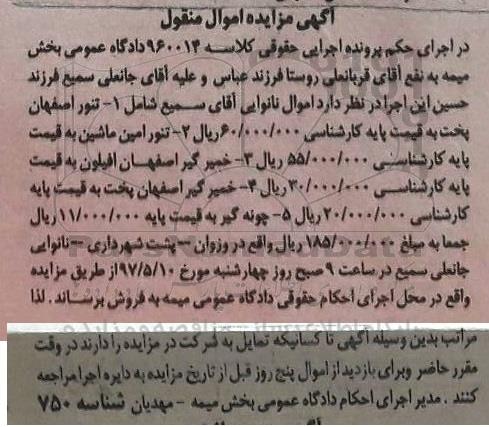 آگهی مزایده اموال منقول
در اجرای حکم پرونده اجرایی حقوقی کلاسه ۹۶۰۰۱۴ دادگاه عمومی بخش
میمه به نفع آقای قربانعلی روستا فرزند عباس و علیه آقای جانعلی سمیع فرزند
حسین این اجرا در نظر دارد اموال نانوایی آقای سمیع شامل ۱- تنور اصفهان
پخت به قیمت پایه کارشناسی ۶۰/۰۰۰/۰۰۰ ریال ۲- تنور امین ماشین به قیمت
پایه کارشناسی ۵۵/۰۰۰/۰۰۰ ریال ۳- خمیر گیر اصفهان افیلون به قیمت
پایه کارشناسی ۳۰/۰۰۰/۰۰۰ ریال ۴- خمیر گیر اصفهان پخت به قیمت پایه
کارشناسی ۲۰/۰۰۰/۰۰۰ ریال ۵- چونه گیر به قیمت پایه ۱۱/۰۰۰/۰۰۰ ریال
جمعا به مبلغ ۱۸۵/۰۰۰/۰۰۰ ریال واقع در وزوان – پشت شهرداری – نانوایی
جانعلی سمیع در ساعت ۹ صبح روز چهارشنبه مورخ ۹۷/۵/۱۰ از طریق مزایده
واقع در محل اجرای احکام حقوقی دادگاه عمومی میمه به فروش برساند . لذا
مراتب بدین وسیله آگهی تا کسانیکه تمایل به شرکت در مزایده را دارند در وقت
مقرر حاضر وبرای بازدید از اموال پنج روز قبل از تاریخ مزایده به دایره اجرا مراجعه
کنند . مدیر اجرای احکام دادگاه عمومی بخش میمه - مهدیان شناسه ۷۵۰